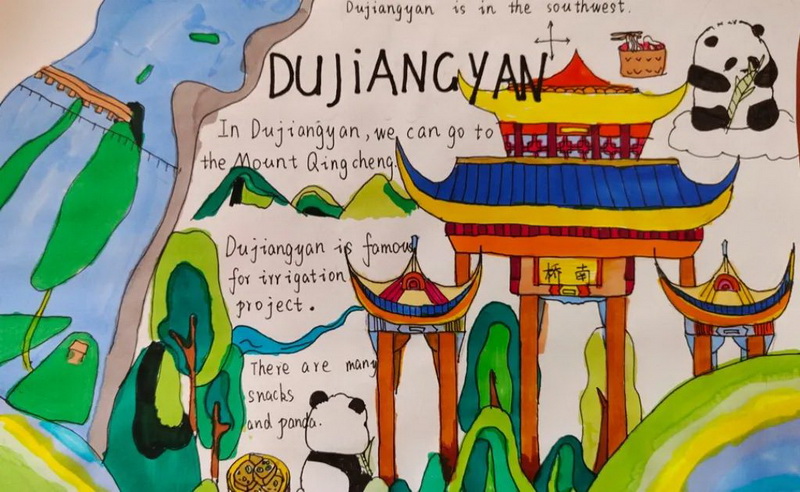 Dujiangyan is in the southwest.
DUJiANGYAN
In Dujiangyan, we can go to
the Mount Qingcheng.
Dujiangyan is famous
for irrigation
project.
桥南
There are many
snacks
and panda.